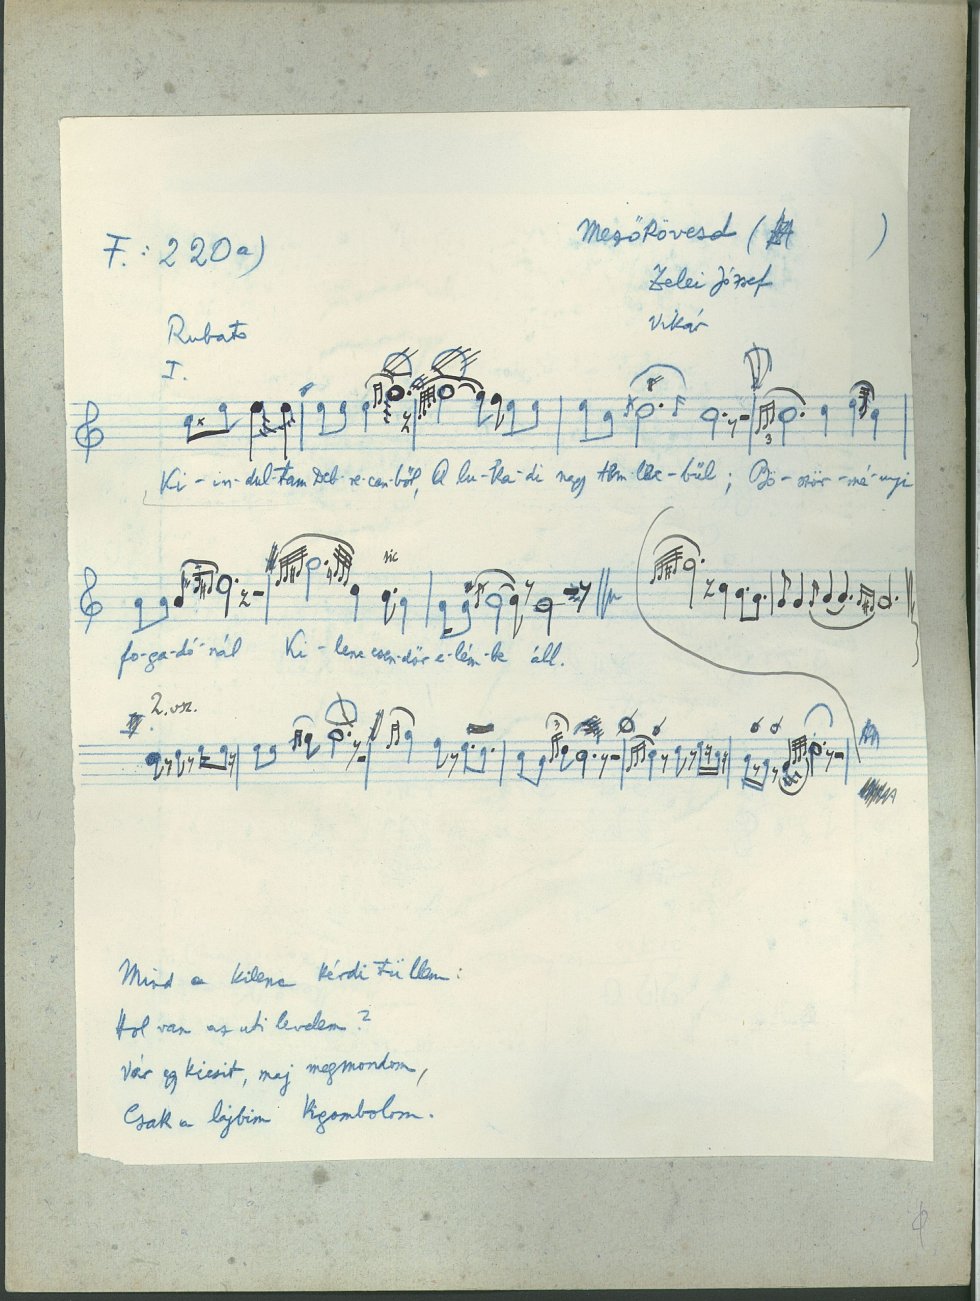 F.: 220a)
Mezőkövesd ( )
Zelei József
Vikár
Rubato
I.
3
Ki-in-dul-tam Deb-re-cen-ből, A lu-ka-di nagy -bűl; Bö-ször-mé-nyi
sic
fo-ga-dó-nál Ki-lenc csen-dőr e-lém-be áll.
2. vsz.
3
Mind a kilenc kérdi tüllem:
Hol van az uti levelem?
Vár egy kicsit, maj megmondom,
Csak a lajbim kigombolom.